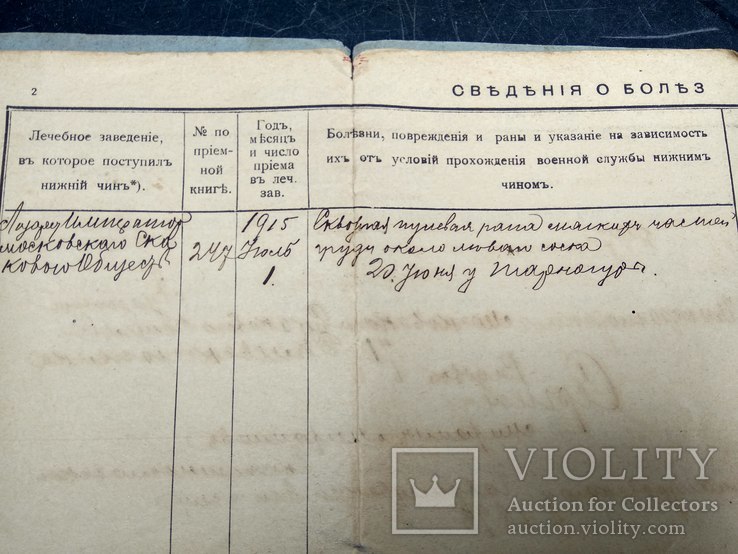 2
СВѢДѢНІЯ О БОЛѢЗ
Лечебное заведеніе,
въ которое поступилъ
нижній чинъ*).
№ по
пріем-
ной
книгѣ.
Годъ,
мѣсяцъ
и число
пріема
въ леч.
зав.
Болѣзни, поврежденія и раны и указаніе на зависимость
ихъ отъ условій прохожденія военной службы нижнимъ
чиномъ.
Лазаретъ Император
Московскаго Ска
ковою Общест
247
1915
Іюль
1.
Сквозная пулевая рана мягкихъ частей
груди около лѣваго соска
20, Іюня у Тарногуры.
VIOLITY
Auction for Collectors
auction.violity.com